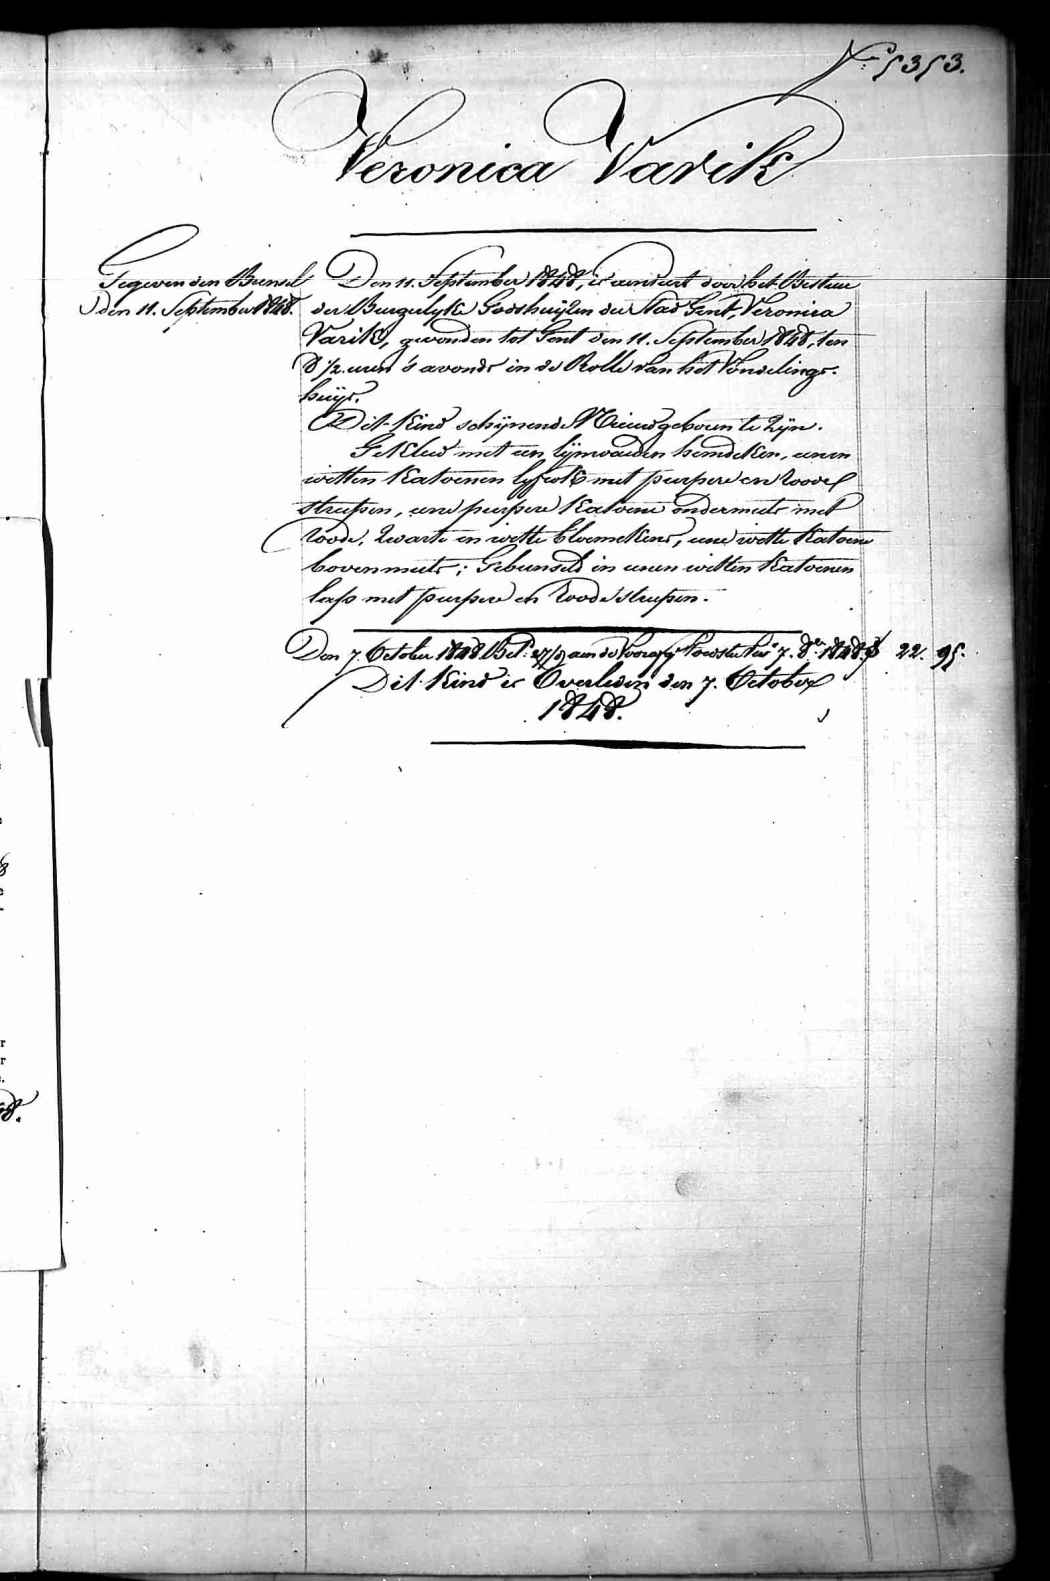 N.º 5353.
Veronica Varik
Gegeven den Bunsel
den 11. September 1848.
Den 11. September 1848, is aenveert door het Bestuur
der Burgelyke Godshuijzen der Stad Gent, Veronica
Varik, gevonden tot Gent den 11. September 1848, ten
8 1/2 uren 's avonds in de Rolle van het Vondelings-
huijs.
Dit Kind schijnende Nieuwgeboren te Zijn.
Gekleed met een lijnwaeden hemdeken, eenen
witten Katoenen lyfrok met purpere en roode
streepen, eene purpere Katoene ondermuts met
roode, Zwarte en witte bloemekens, eene witte Katoene
bovenmuts; Gebunseld in eenen witten Katoenen
lap met purpere en roode streepen.
Den 7. October 1848 aen de 7. 8.er 1848. 22. 95.
Dit Kind is Overleden den 7. October
1848.